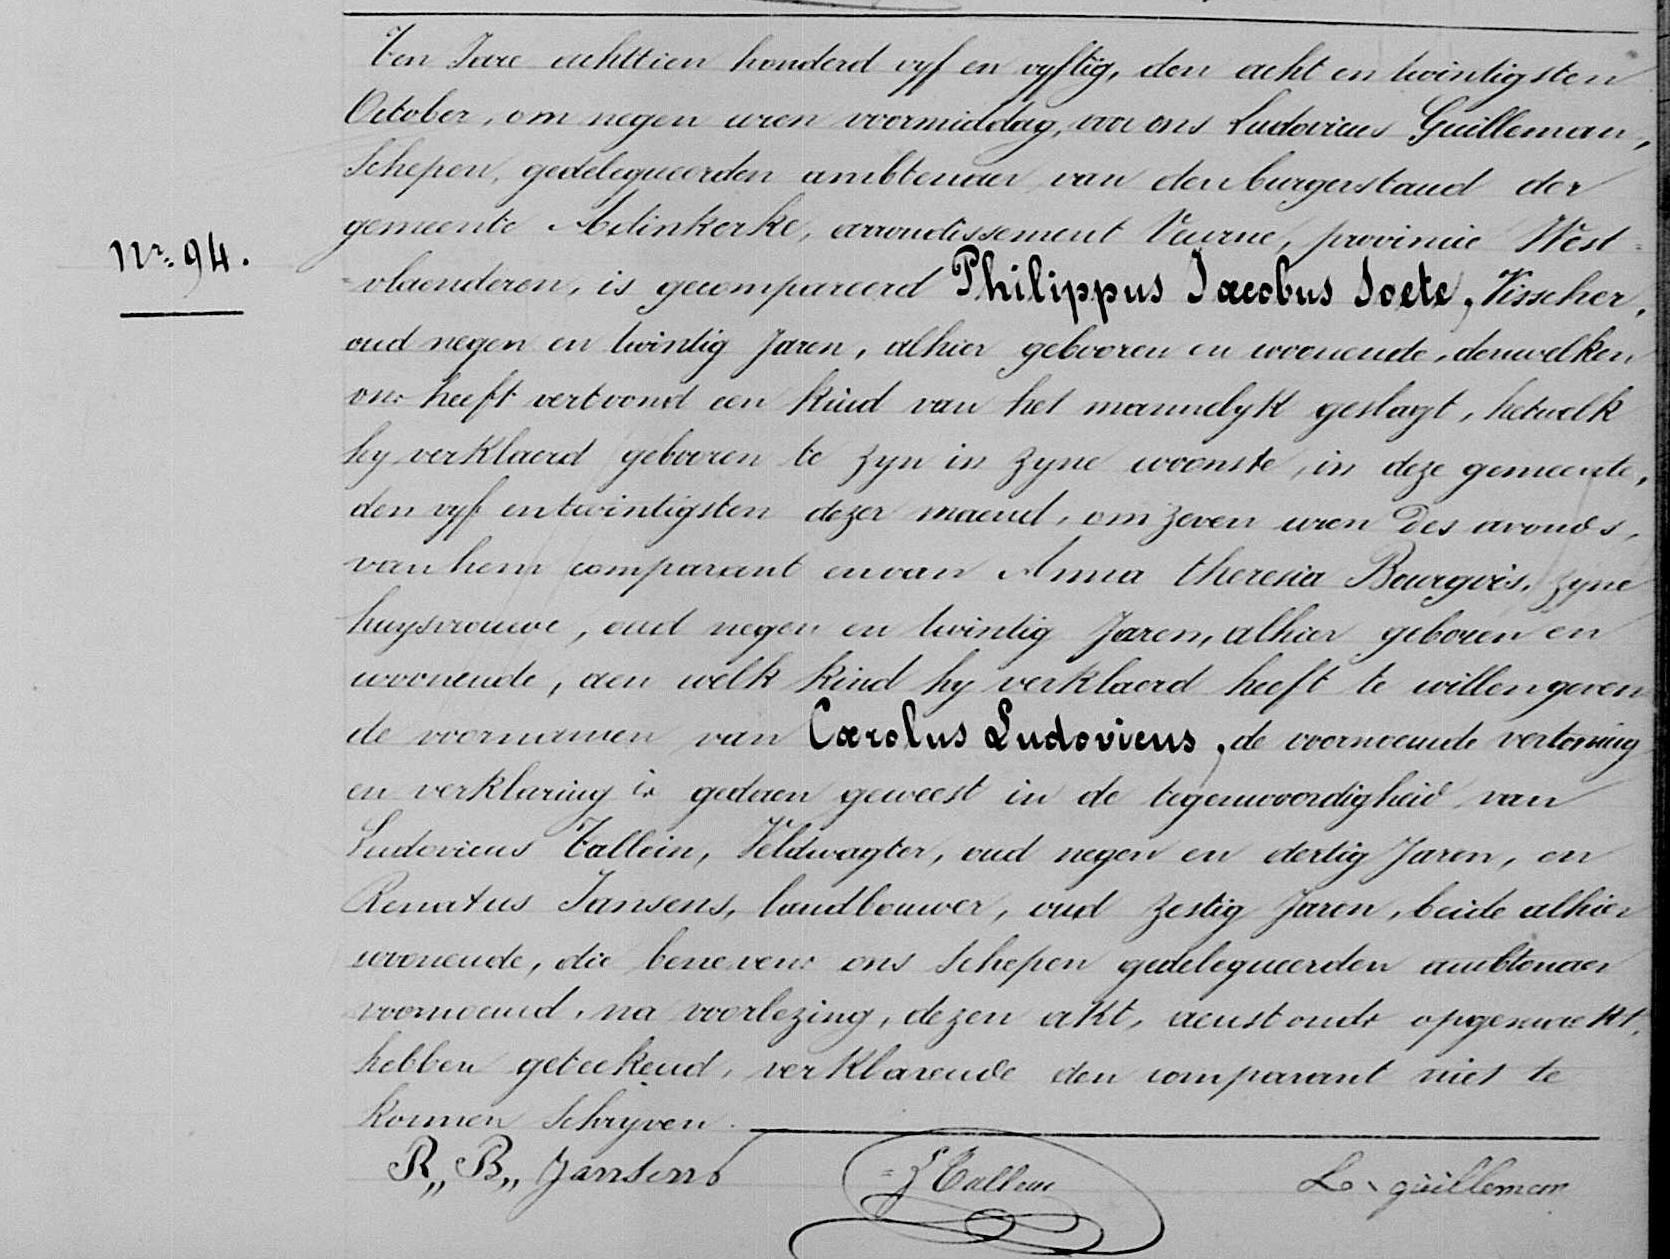 Ten Jare achttien honderd vyf en vyftig, den acht en twintigsten
October, om negen uren voormiddag, voor ons Ludovicus Guilleman,
Schepen, gedelegueerden ambtenaer van den burgerstand der
gemeente Adinkerke, arrondissement Veurne, provincie West-
nr. 94.
-vlaenderen, is gecompareerd Philippus Jacobus Soete, Visscher,
oud negen en twintig Jaren, alhier gebooren en woonende, denwelken
ons heeft vertoond een kind van het mannelyk geslagt, hetwelk
hy verklaerd gebooren te zyn in zyne woonste, in deze gemeente,
den vyf en twintigsten dezer maend, om zeven uren des avonds,
van hem comparant en van Anna theresia Bourgois, zyne
huysvrouwe, oud negen en twintig Jaren, alhier geboren en
woonende, aen welk kind hy verklaerd heeft te willen geven
de voornamen van Carolus Ludovicus, de voornoemde vertooning
en verklaring is gedaen geweest in de tegenwoordigheid van
Ludovicus Tallein, Veldwagter, oud negen en dertig Jaren, en
Renatus Jansens, landbouwer, oud zestig Jaren, beide alhier
woonende, die benevens ons Schepen gedelegueerden ambtenaer
voornoemd, na voorlezing, dezen akt, aenstonds opgemaekt,
hebben geteekend, verklarende den comparant niet te
konnen Schryven.
R,, B,, Jansens Tallein L. guilleman